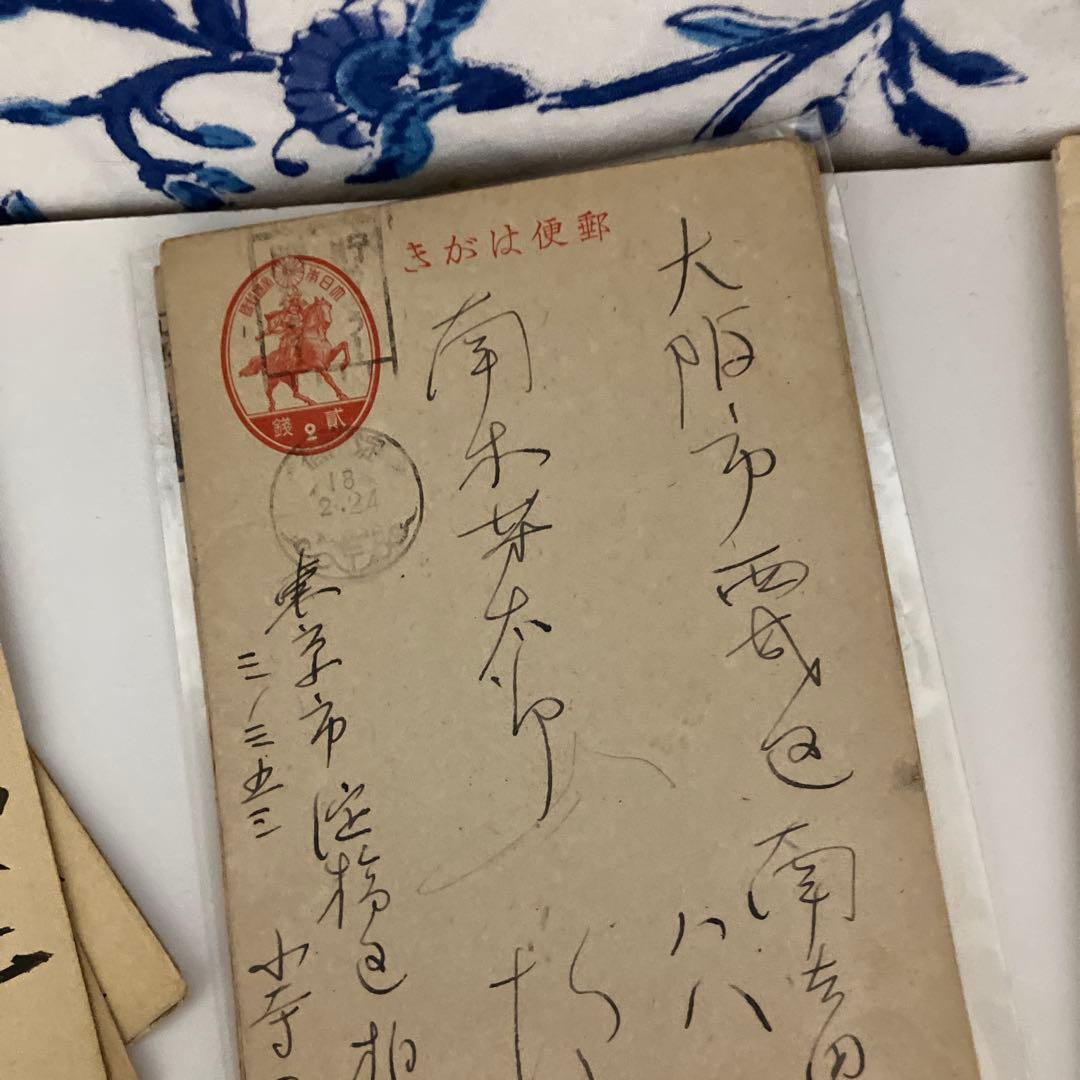 郵便はがき
大日本帝國郵便
貳 2 錢
18
2.24
大阪市西成区南吉田
八八
南木芳太郎
東京市淀橋区柏
三ノ三五三
小寺